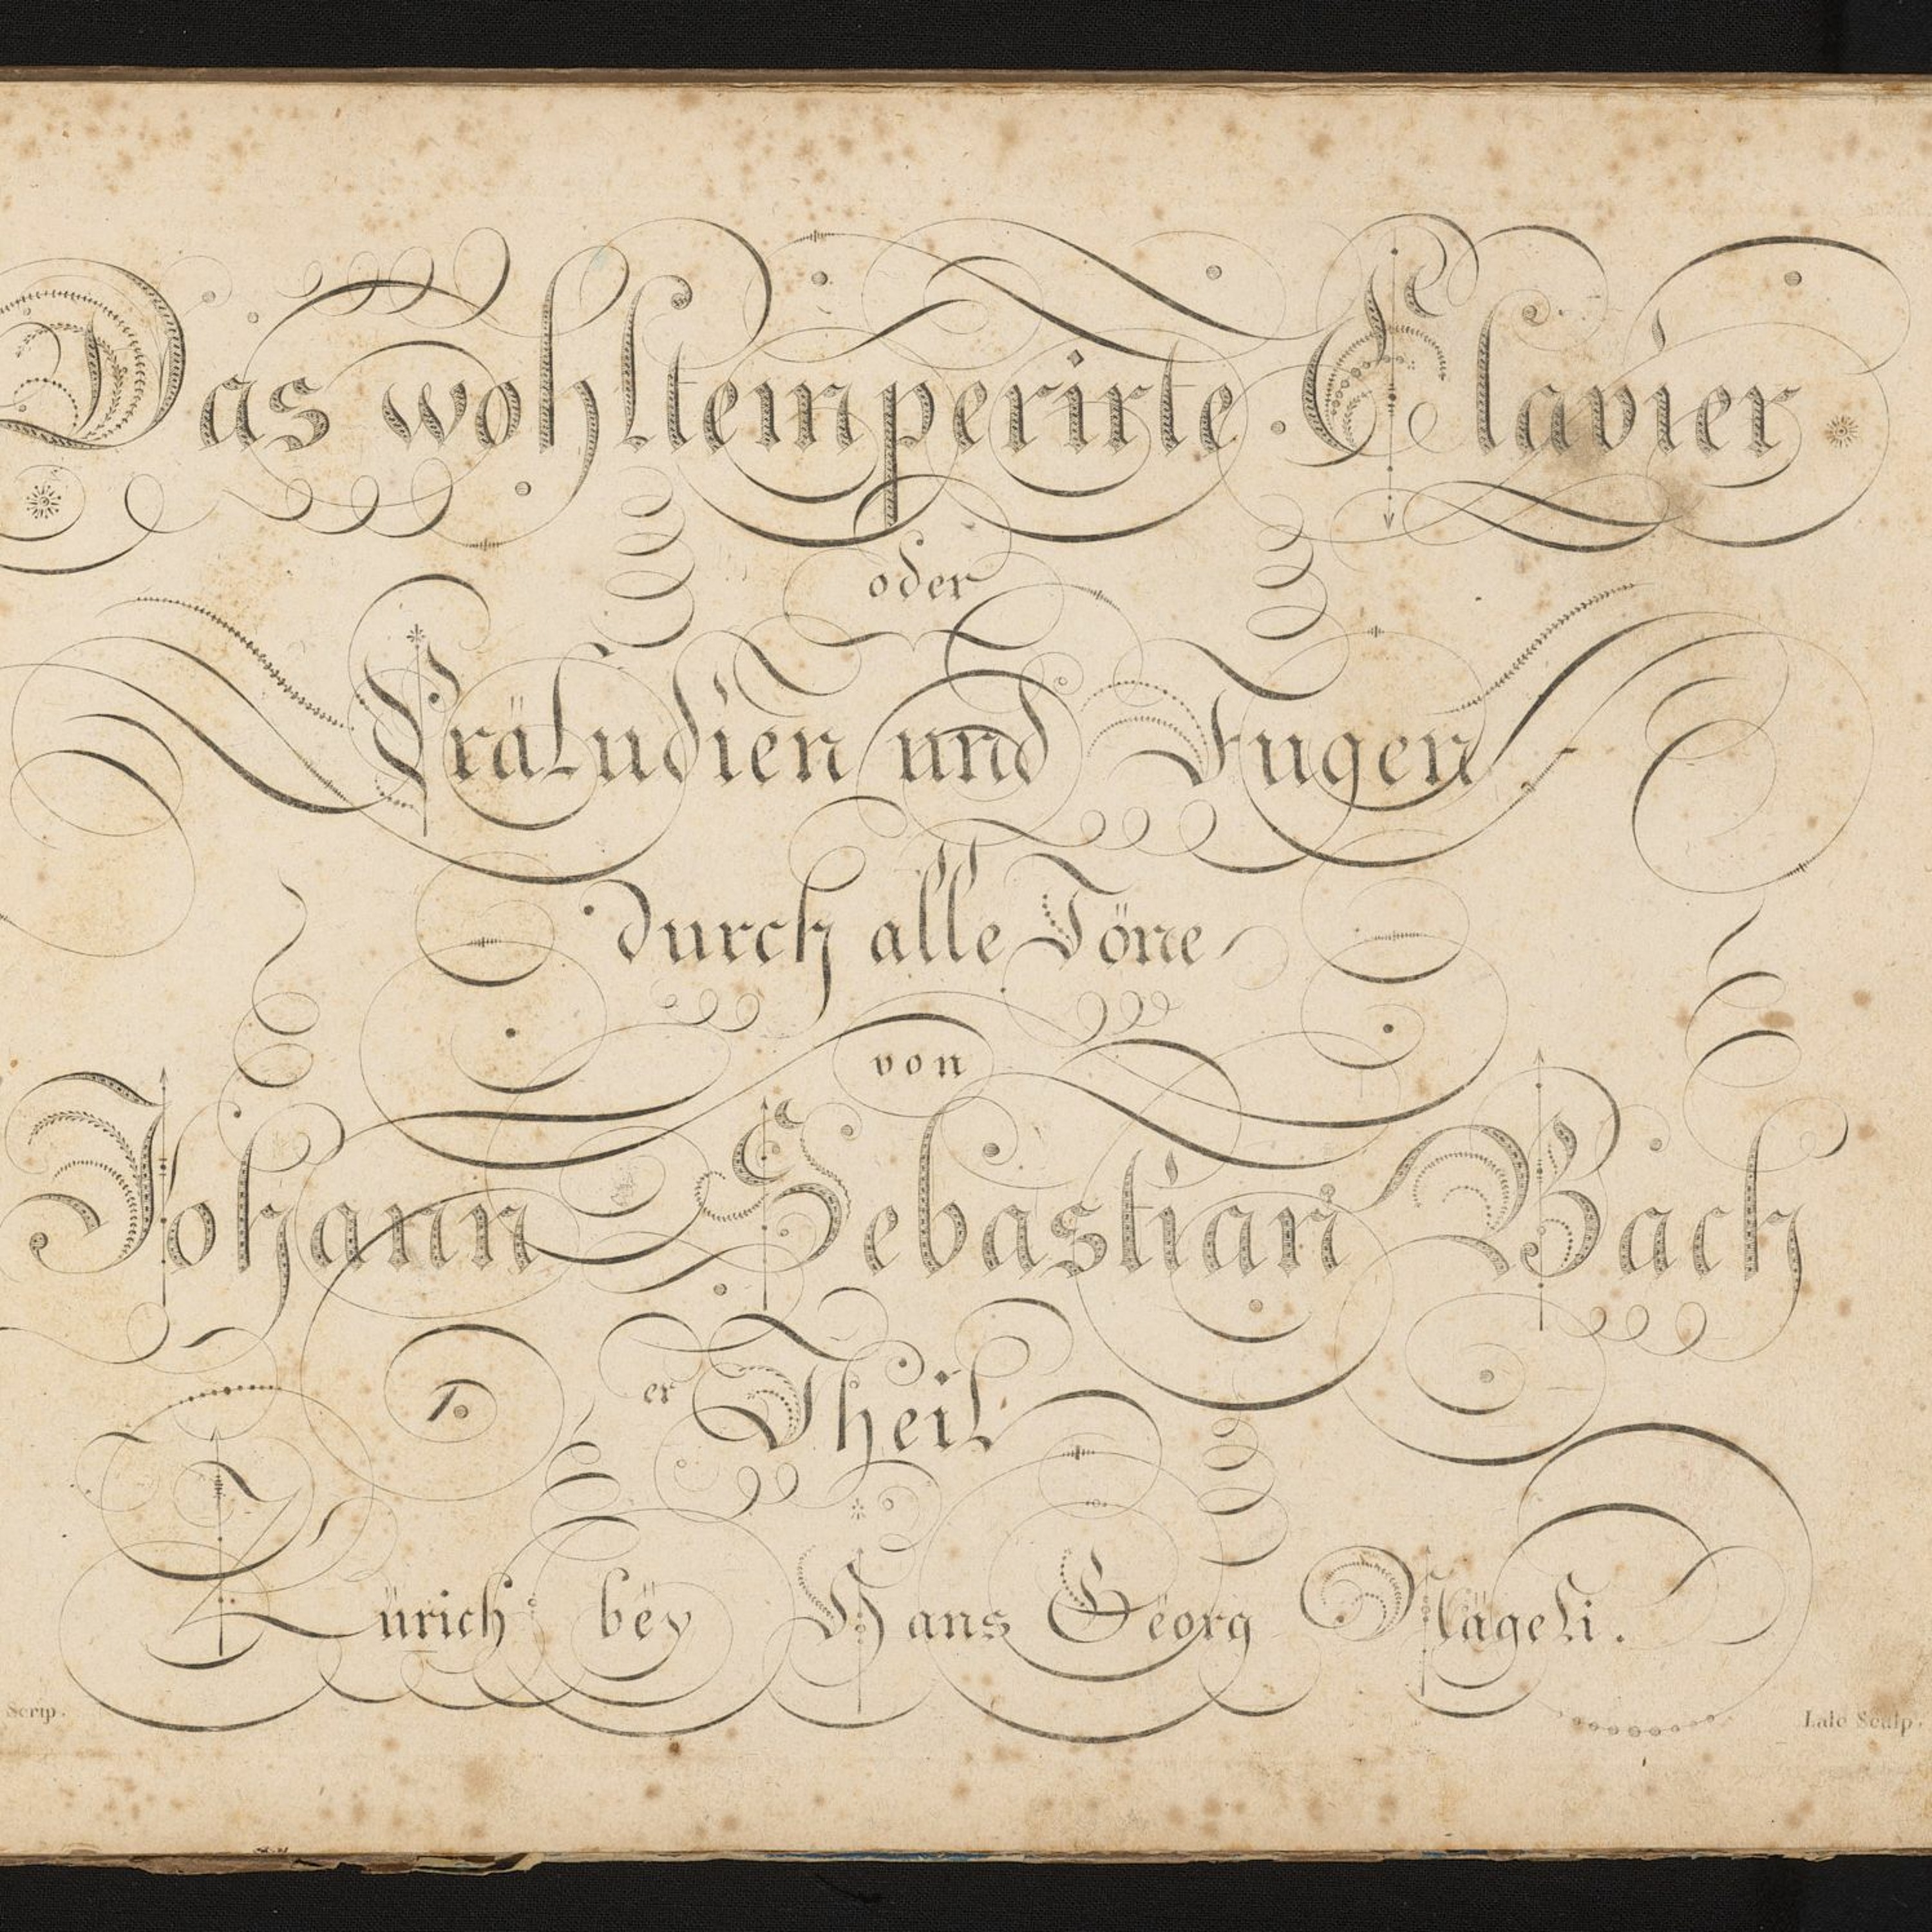 Das wohltemperirte Clavier
oder
Präludien und Fugen
durch alle Töne
von
Johann Sebastian Bach
1. er Theil
Zürich bëy Hans Gëorg Nägeli.
Scrip. Lale Sculp.